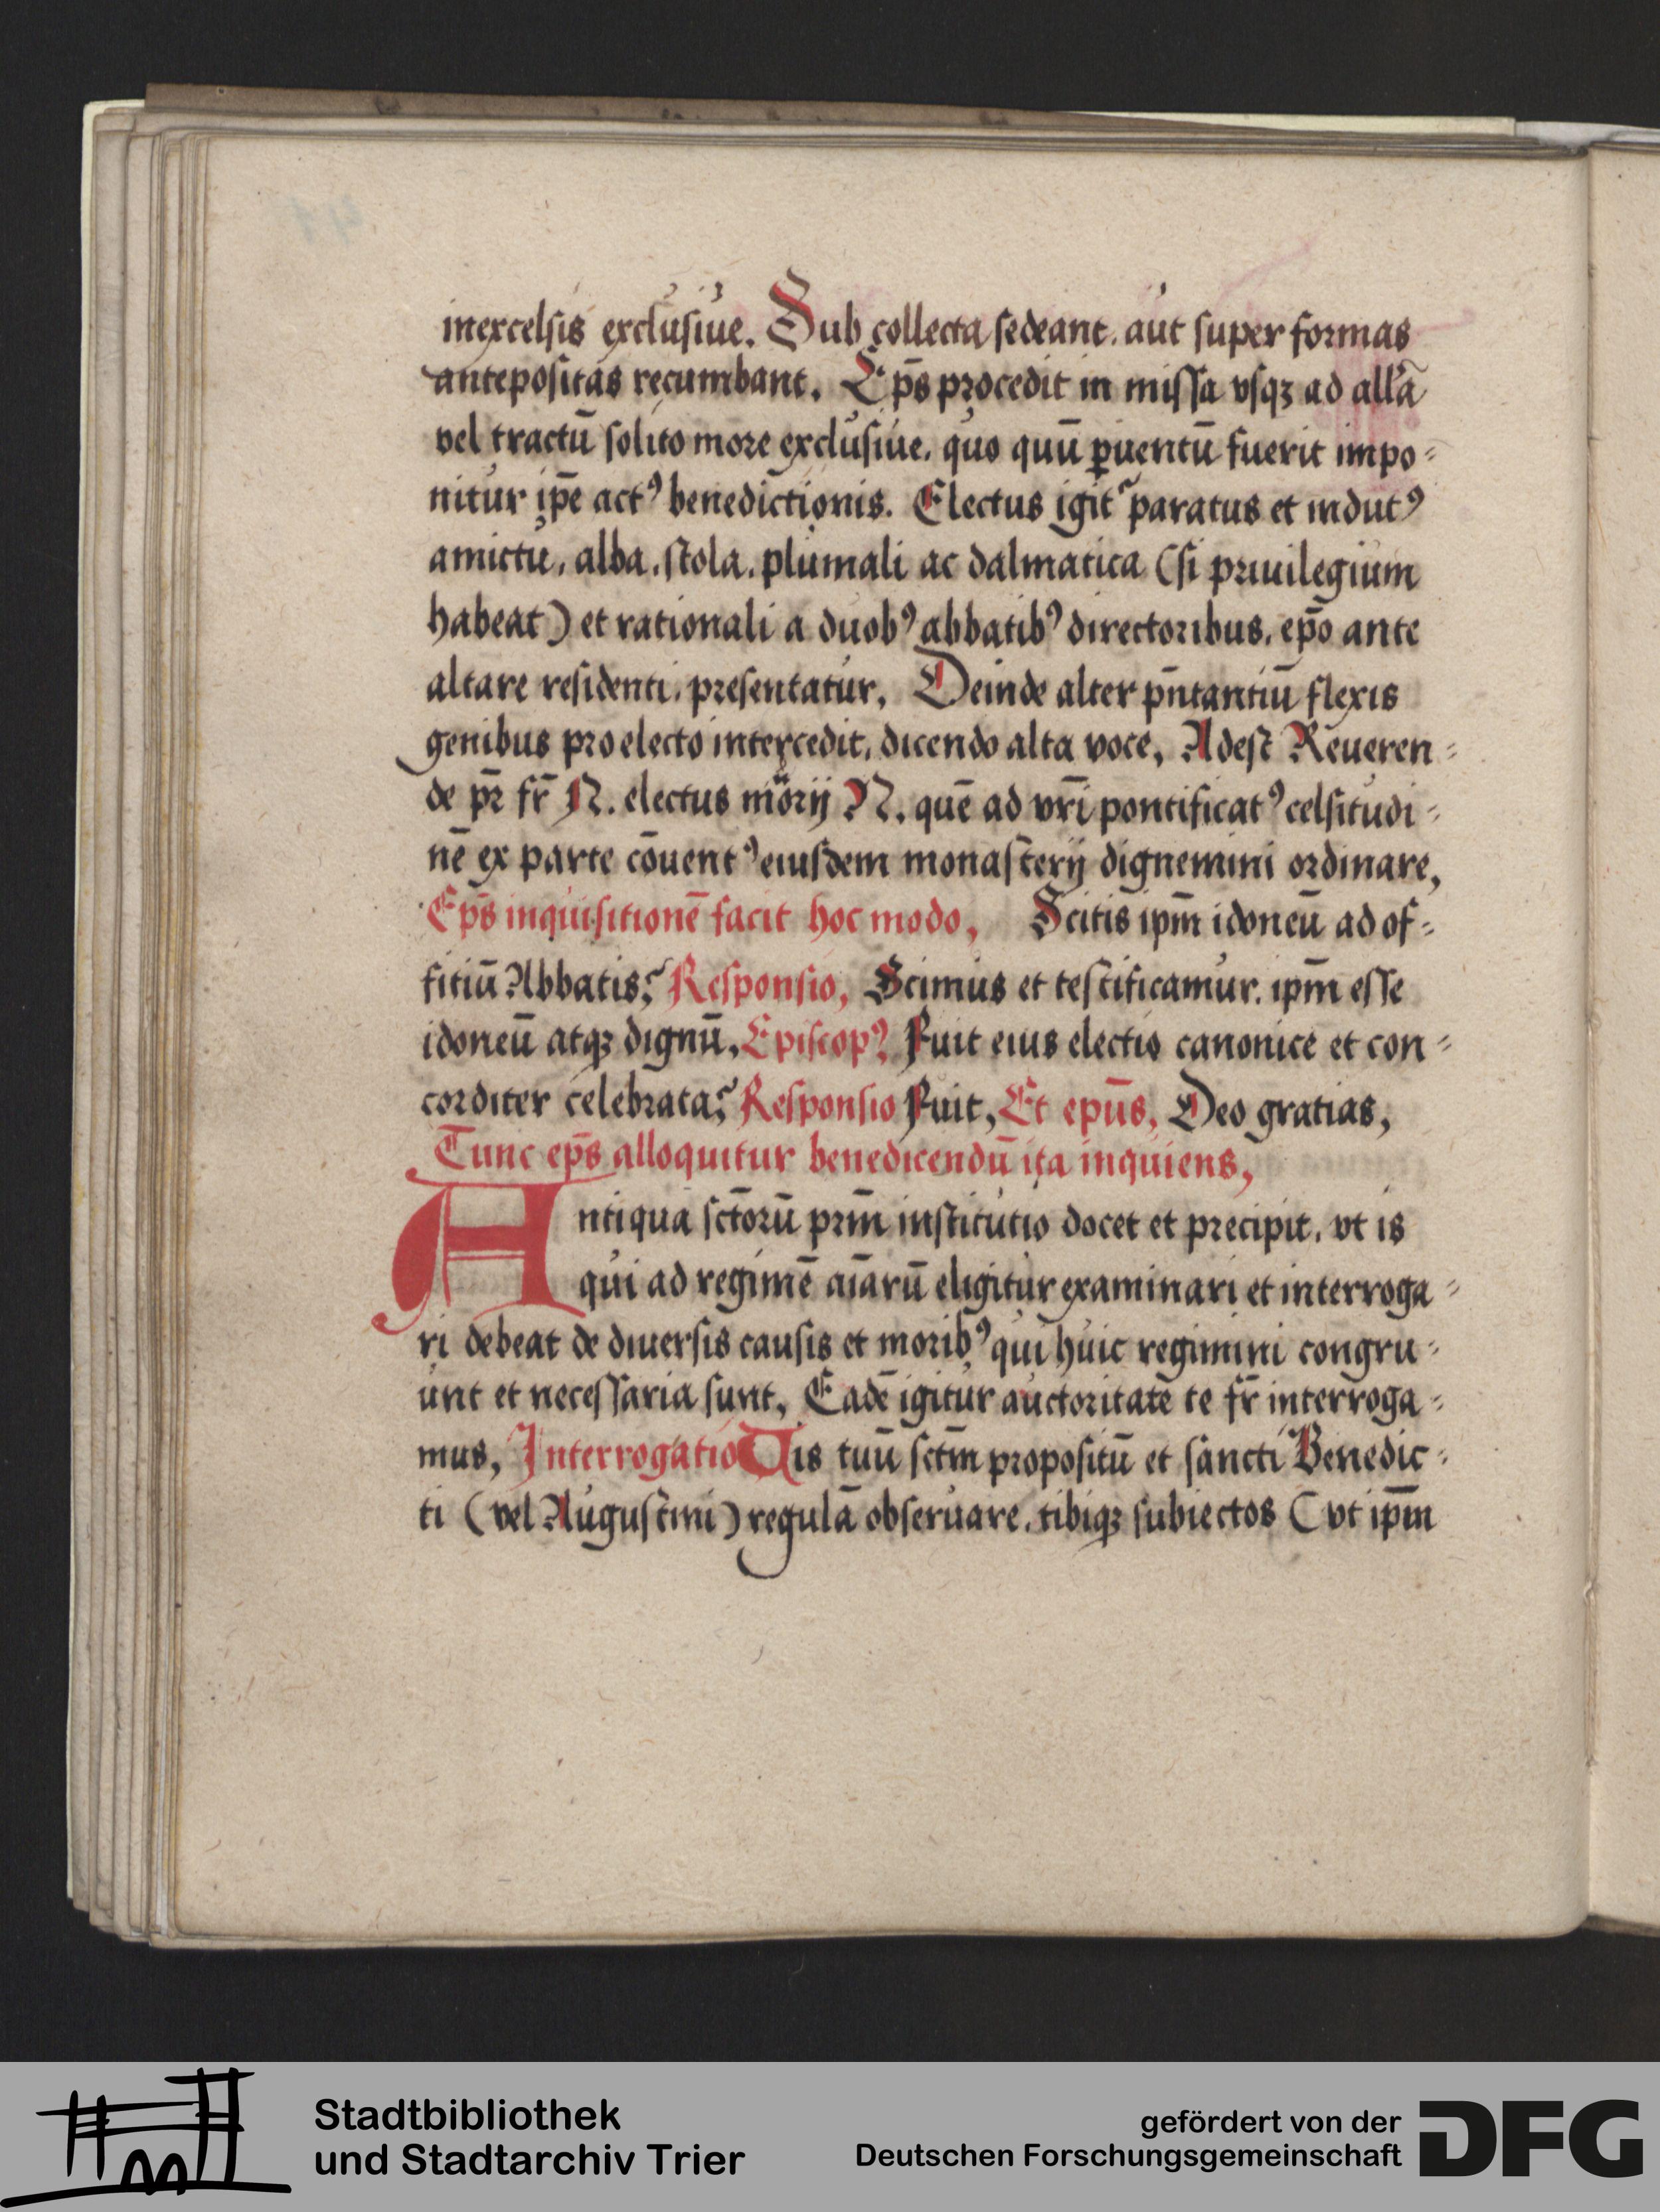 inexcelsis exclusiue. Sub collecta sedeant. aut super formas
antepositas recumbant. Ep̄s procedit in missa vsqꝫ ad all'a
vel tractū solito more exclusiue. quo quū ꝑuentū fuerit impo=
nitur ip̄e actꝰ benedictionis. Electus igit᷑ paratus et indutꝰ
amictu. alba. stola. plumali ac dalmatica (si priuilegium
habeat) et rationali a duobꝰ abbatibꝰ directoribus. ep̄o ante
altare residenti. presentatur, Deinde alter pn̄tantiū flexis
genibus pro electo intercedit. dicendo alta voce, Adest Reueren=
de pr̄ fr̄ N. electus mōrij N. quē ad vr̄i pontificatꝰ celsitudi=
nē ex parte cōuentꝰ eiusdem monasterij dignemini ordinare,
Ep̄s inquisitionē facit hoc modo, Scitis ipm̄ idoneū ad of=
fitiū Abbatis? Responsio, Scimus et testificamur. ipm̄ esse
idoneū atqꝫ dignū. Episcopꝰ, Fuit eius electio canonice et con=
corditer celebrata? Responsio Fuit, Et epūs, Deo gratias,
Tunc ep̄s alloquitur benedicendū ita inquiens,
Antiqua sct̄orū prm̄ institutio docet et precipit. vt is
qui ad regimē aīarū eligitur examinari et interroga=
ri debeat de diuersis causis et moribꝰ qui huic regimini congru=
unt et necessaria sunt, Eadē igitur auctoritate te fr̄ interroga=
mus, Interrogatio Uis tuū sctm̄ propositū et sancti Benedic=
ti (vel Augustini) regulā obseruare. tibiqꝫ subiectos (vt ipm̄
Stadtbibliothek
und Stadtarchiv Trier
gefördert von der
Deutschen Forschungsgemeinschaft
DFG